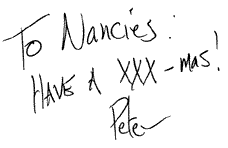 To Nancies:
HAVE A XXX-mas!
Peter